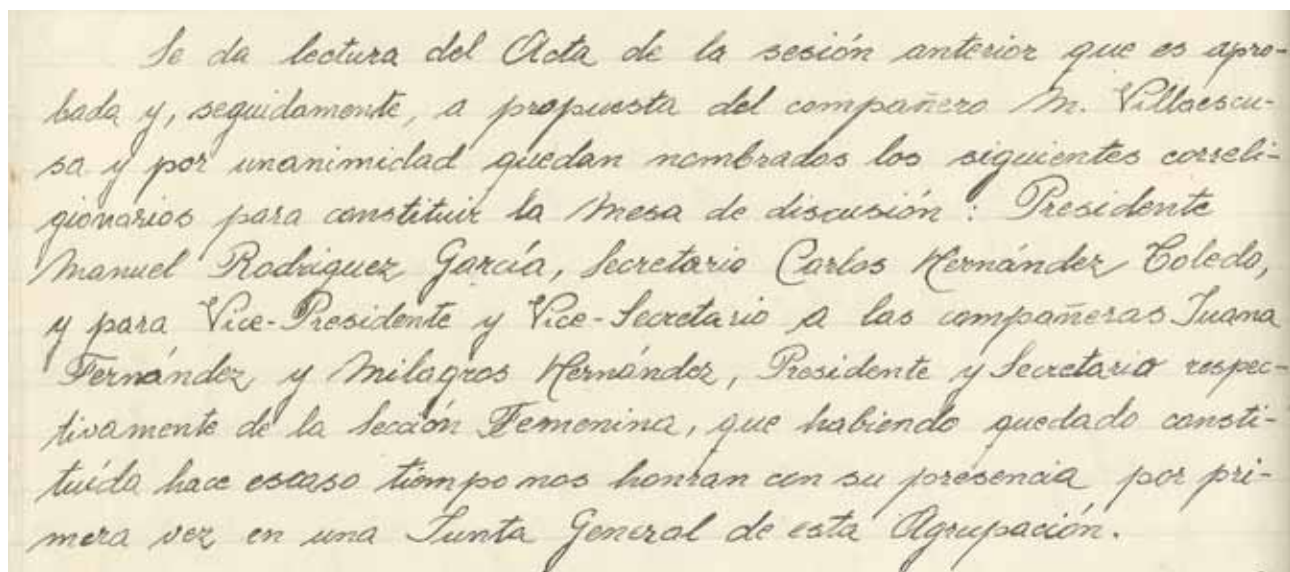 Se da lectura del Acta de la sesión anterior que es apro-
bada y, seguidamente, a propuesta del compañero M. Villaescu-
sa y por unanimidad quedan nombrados los siguientes correli-
gionarios para constituir la Mesa de discusión: Presidente
Manuel Rodriguez García, Secretario Carlos Hernández Toledo,
y para Vice-Presidente y Vice-Secretario a las compañeras Juana
Fernández y Milagros Hernández, Presidente y Secretario respec-
tivamente de la Sección Femenina, que habiendo quedado consti-
tuída hace escaso tiempo nos honran con su presencia por pri-
mera vez en una Junta General de esta Agrupación.